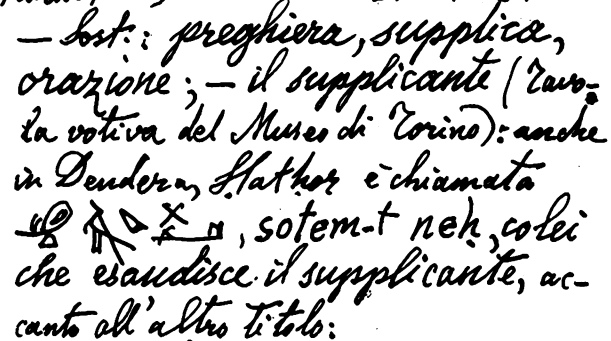 — Sost.: preghiera, supplica,
orazione; — il supplicante (Tavo-
la votiva del Museo di Torino): anche
in Dendera, Hathor è chiamata
, sotem-t neh, colei
che esaudisce il supplicante, ac-
canto all'altro titolo: